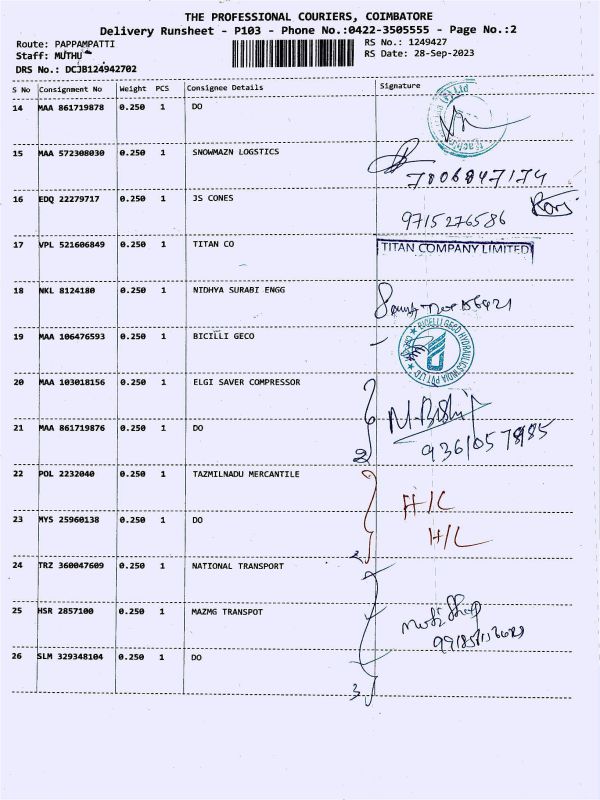 THE PROFESSIONAL COURIERS, COIMBATORE
Delivery Runsheet - P103 - Phone No.:0422-3505555 - Page No.:2
Route: PAPPAMPATTI RS No.: 1249427
Staff: MUTHU RS Date: 28-Sep-2023
DRS No.: DCJB124942702
S No Consignment No Weight PCS Consignee Details Signature
14 MAA 861719878 0.250 1 DO
15 MAA 572308030 0.250 1 SNOWMAZN LOGSTICS
7806847174
16 EDQ 22279717 0.250 1 JS CONES
9715276586
17 VPL 521606849 0.250 1 TITAN CO TITAN COMPANY LIMITED
18 NKL 8124180 0.250 1 NIDHYA SURABI ENGG
19 MAA 106476593 1 BICILLI GECO
0.250
BICELLI GECO HYDRAULICS INDIA PVT LTD
20 MAA 103018156 0.250 1 ELGI SAVER COMPRESSOR
21 MAA 861719876 0.250 1 DO
2
22 POL 2232040 0.250 1 TAZMILNADU MERCANTILE
H/L
23 MYS 25960138 0.250 1 DO
H/L
2
24 TRZ 360047609 0.250 1 NATIONAL TRANSPORT
25 HSR 2857100 0.250 1 MAZMG TRANSPOT
26 SLM 329348104 0.250 1 DO
3